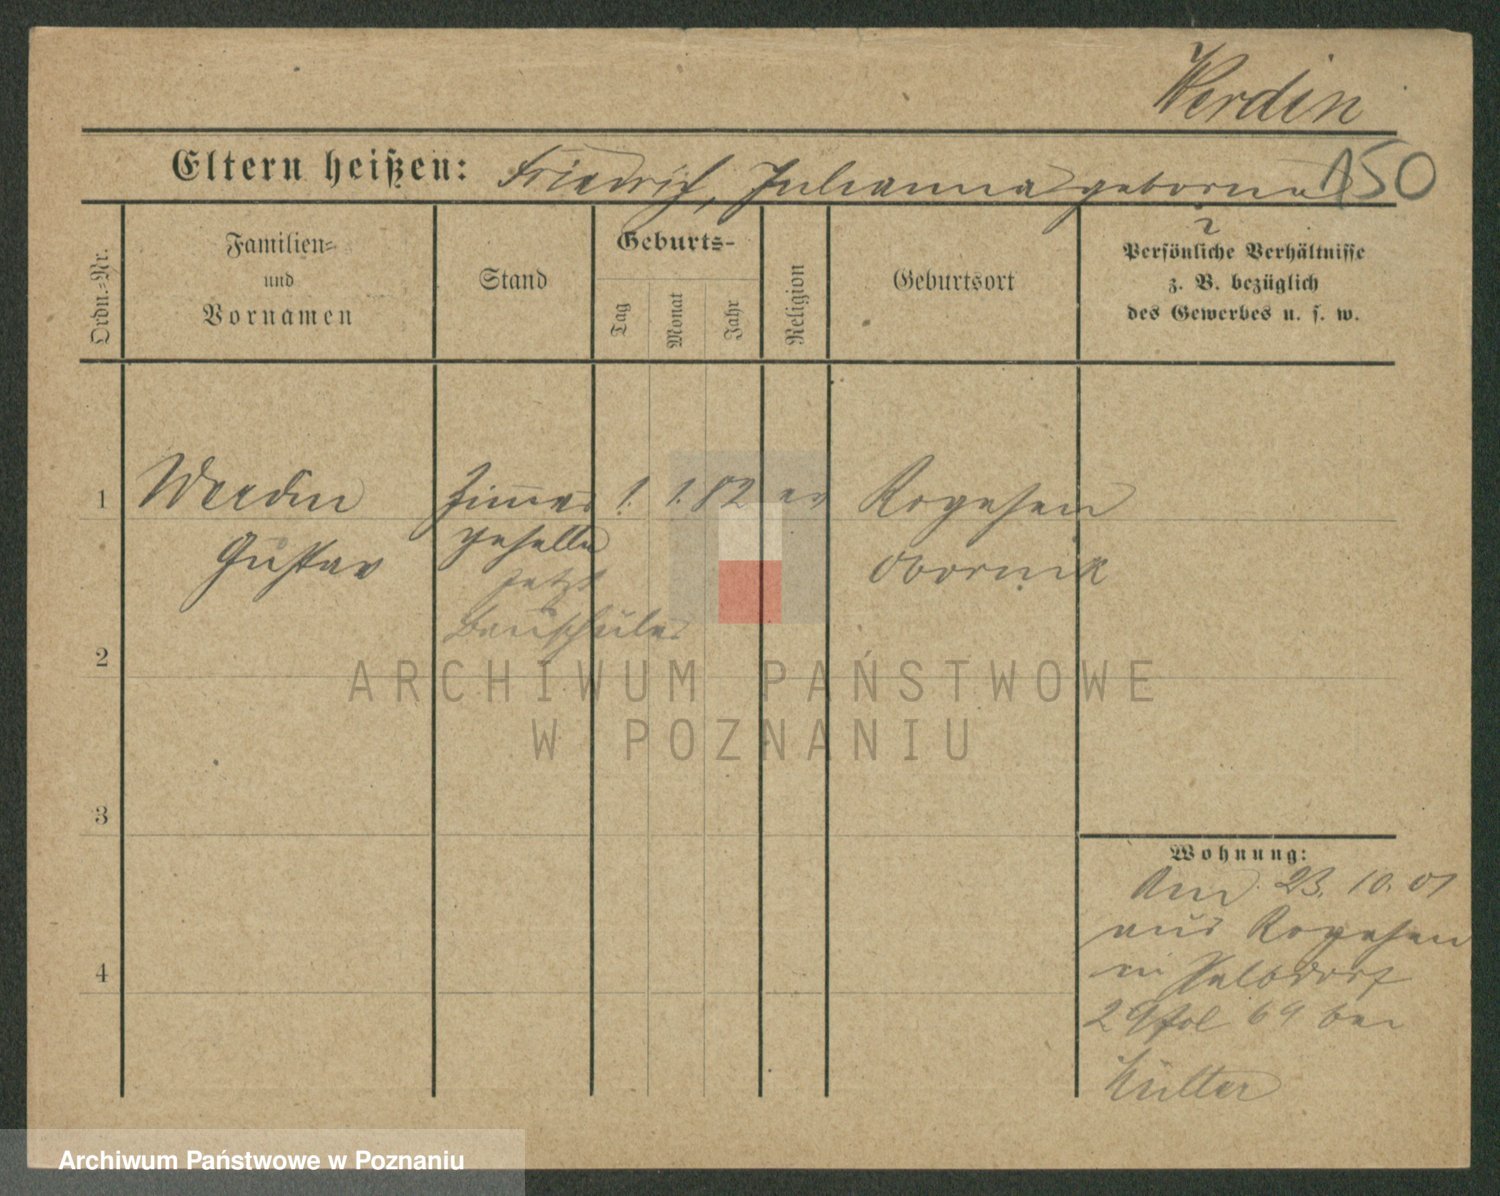 Werdin
Eltern heißen: Friedrich, Julianna geborne
150
?
Ordn.=Nr.
Familien=
und
Vornamen
Stand
Geburts-
Tag
Monat
Jahr
Religion
Geburtsort
Persönliche Verhältnisse
z. B. bezüglich
des Gewerbes u. s. w.
1 Werdin Zimmer 1. 1. 82 ev Rogasen
Gustav geselle Obornik
jetzt
Bauschüler
2
ARCHIWUM PAŃSTWOWE
W POZNANIU
3
Wohnung:
Am 23. 10. 01
aus Rogasen
in
4
69 bei
Archiwum Państwowe w Poznaniu